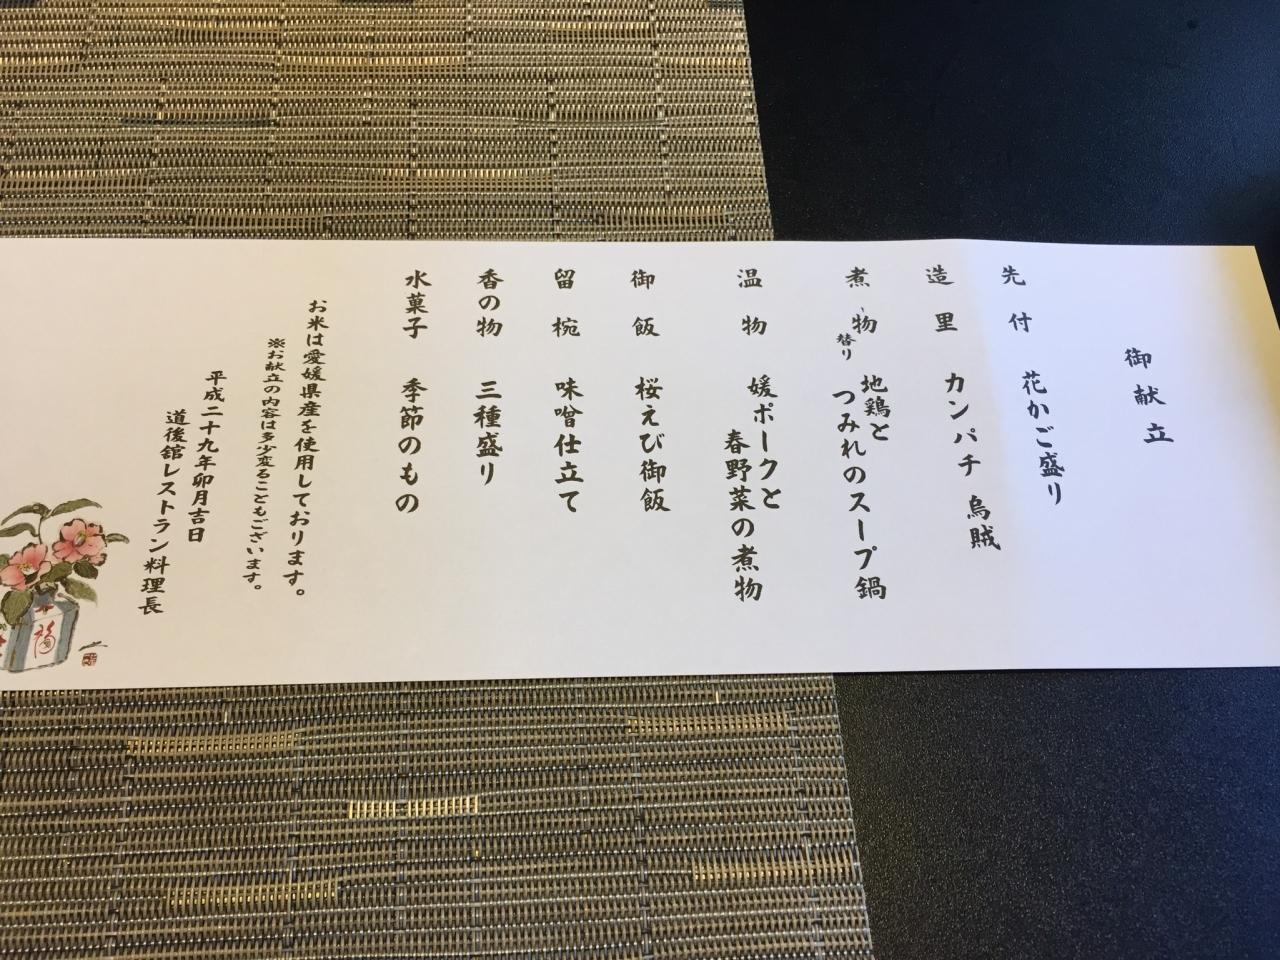 御献立
先付 花かご盛り
造里 カンパチ 烏賊
煮物替り 地鶏と
つみれのスープ鍋
温物 媛ポークと
春野菜の煮物
御飯 桜えび御飯
留椀 味噌仕立て
香の物 三種盛り
水菓子 季節のもの
お米は愛媛県産を使用しております。
※お献立の内容は多少変ることもございます。
平成二十九年卯月吉日
道後舘レストラン料理長
福